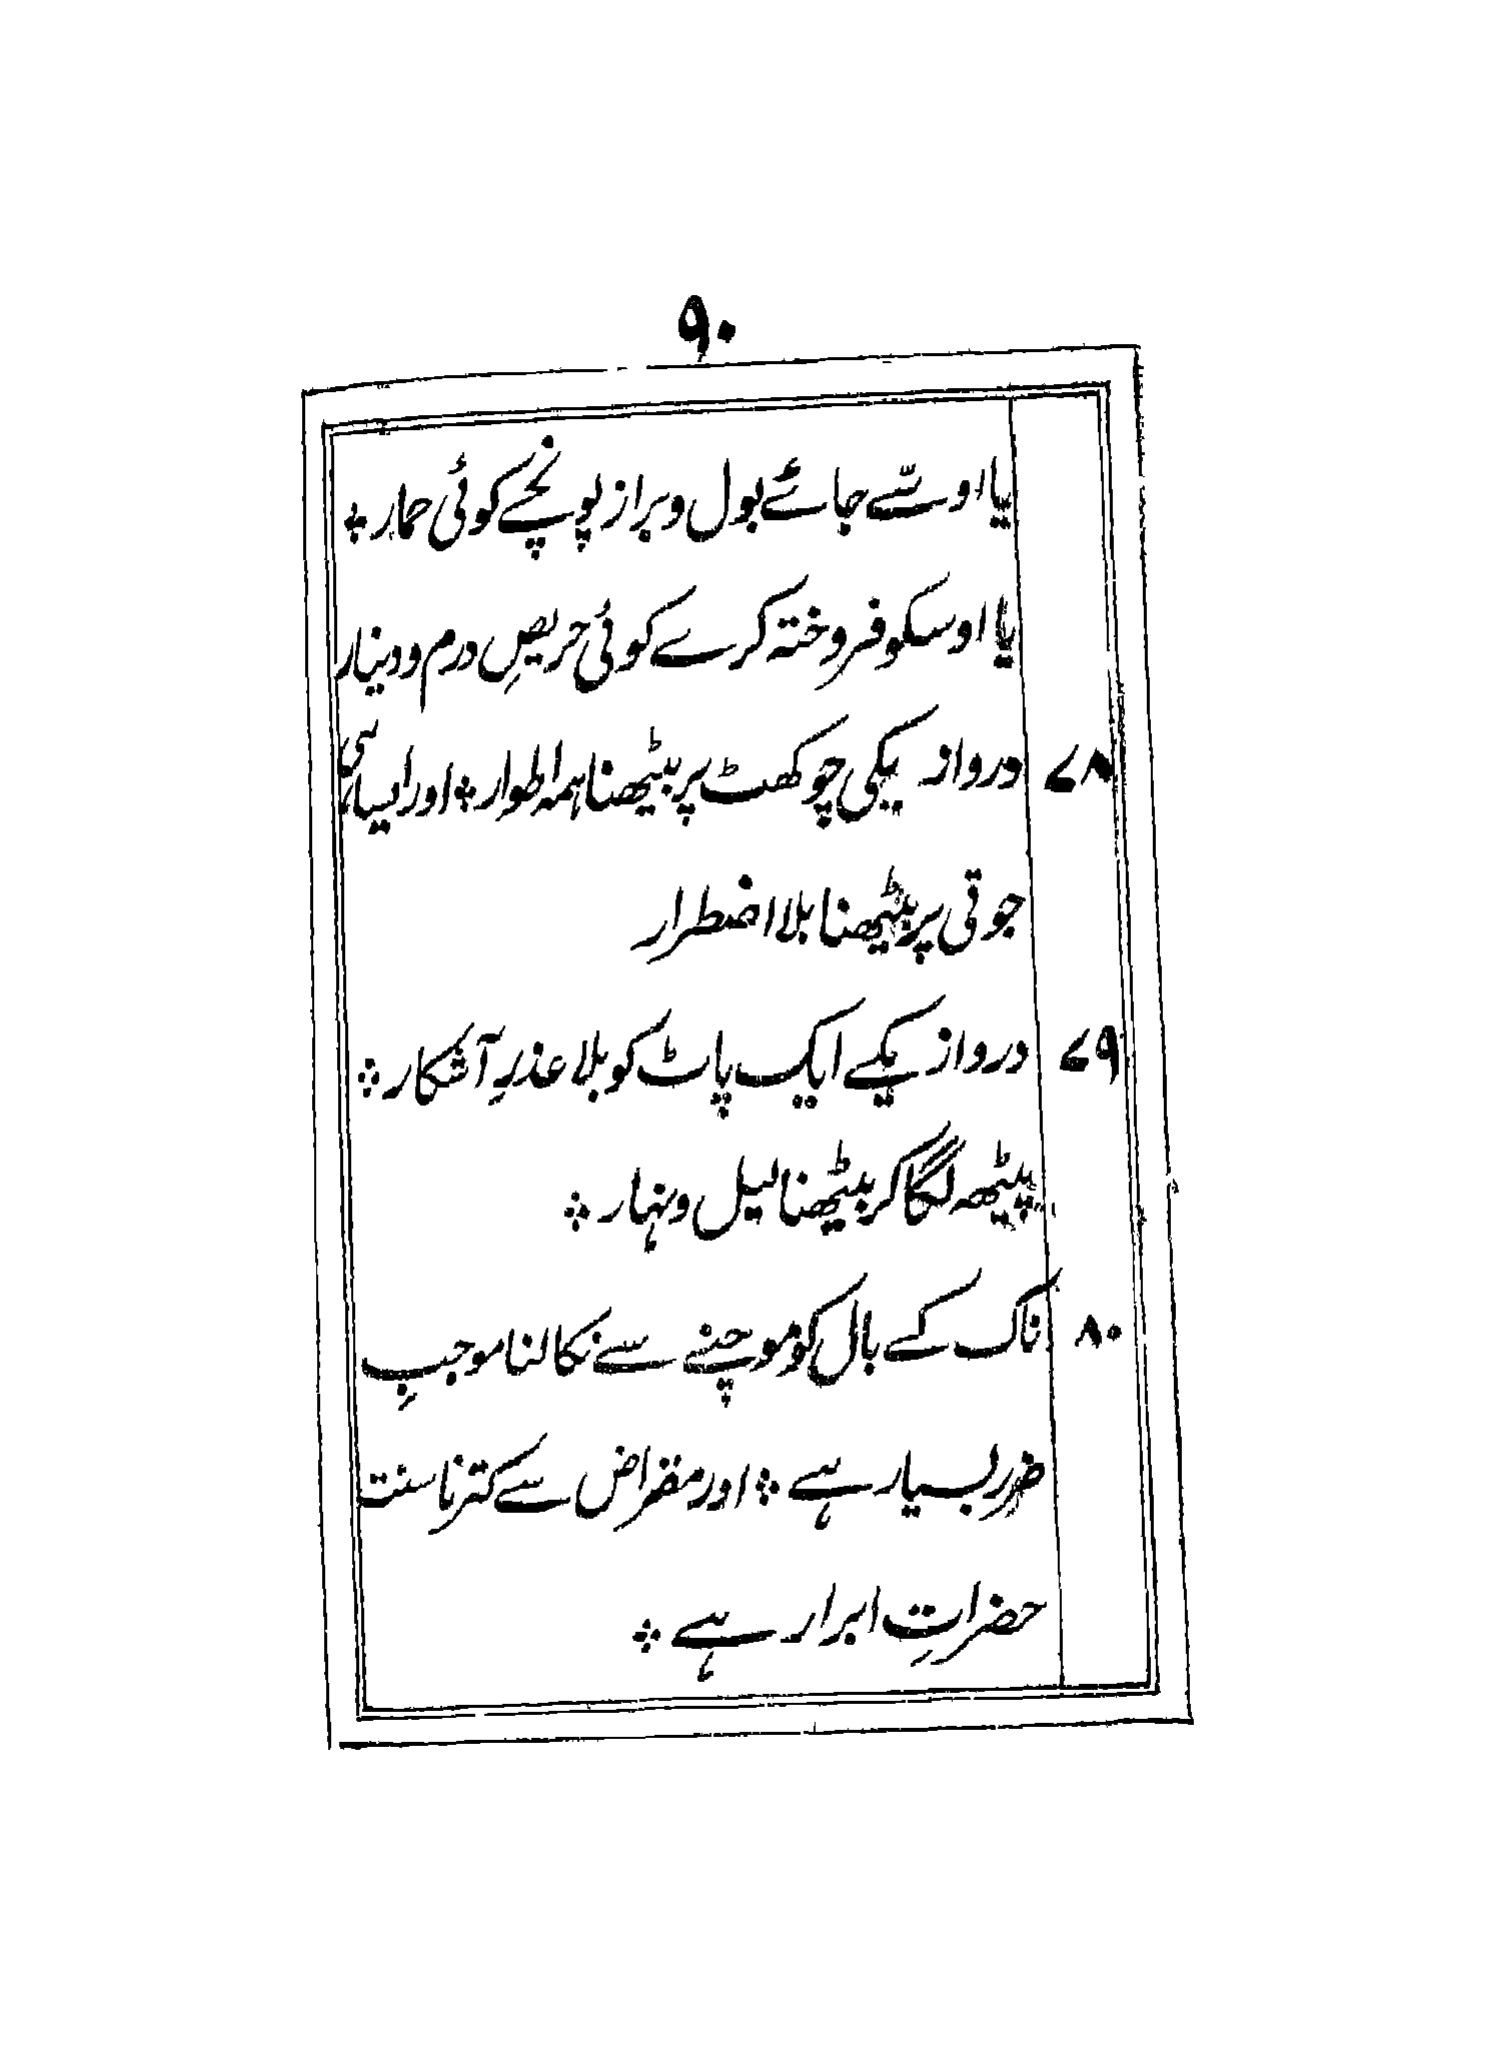 ۹۰
یا اوسّے جائے بول و براز پونچے کوئی حمار ؞
یا اوسکو فروختہ کرے کوئی حریصِ درم و دینار
۷۸ دروازیکی چوکھٹ پر بیٹھنا ہمہ اطوار ؞ اور ایسا ہی
جوتی پر بیٹھنا بلا اضطرار
۷۹ دروازیکے ایک پاٹ کو بلا عذرِ آشکار ؞
پیٹھہ لگا کر بیٹھنا لیل و نہار ؞
۸۰ ناک کے بال کو موچنے سے نکالنا موجبِ
ضرر بسیار ہے ؞ اور مقراض سے کترنا سنت
حضراتِ ابرار ہے ؞